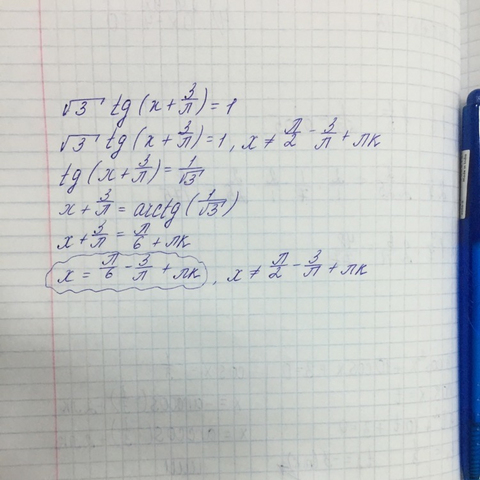 √3 tg(x + 3/π) = 1
√3 tg(x + 3/π) = 1, x ≠ π/2 - 3/π + πk
tg(x + 3/π) = 1/√3
x + 3/π = arctg(1/√3)
x + 3/π = π/6 + πk
x = π/6 - 3/π + πk, x ≠ π/2 - 3/π + πk